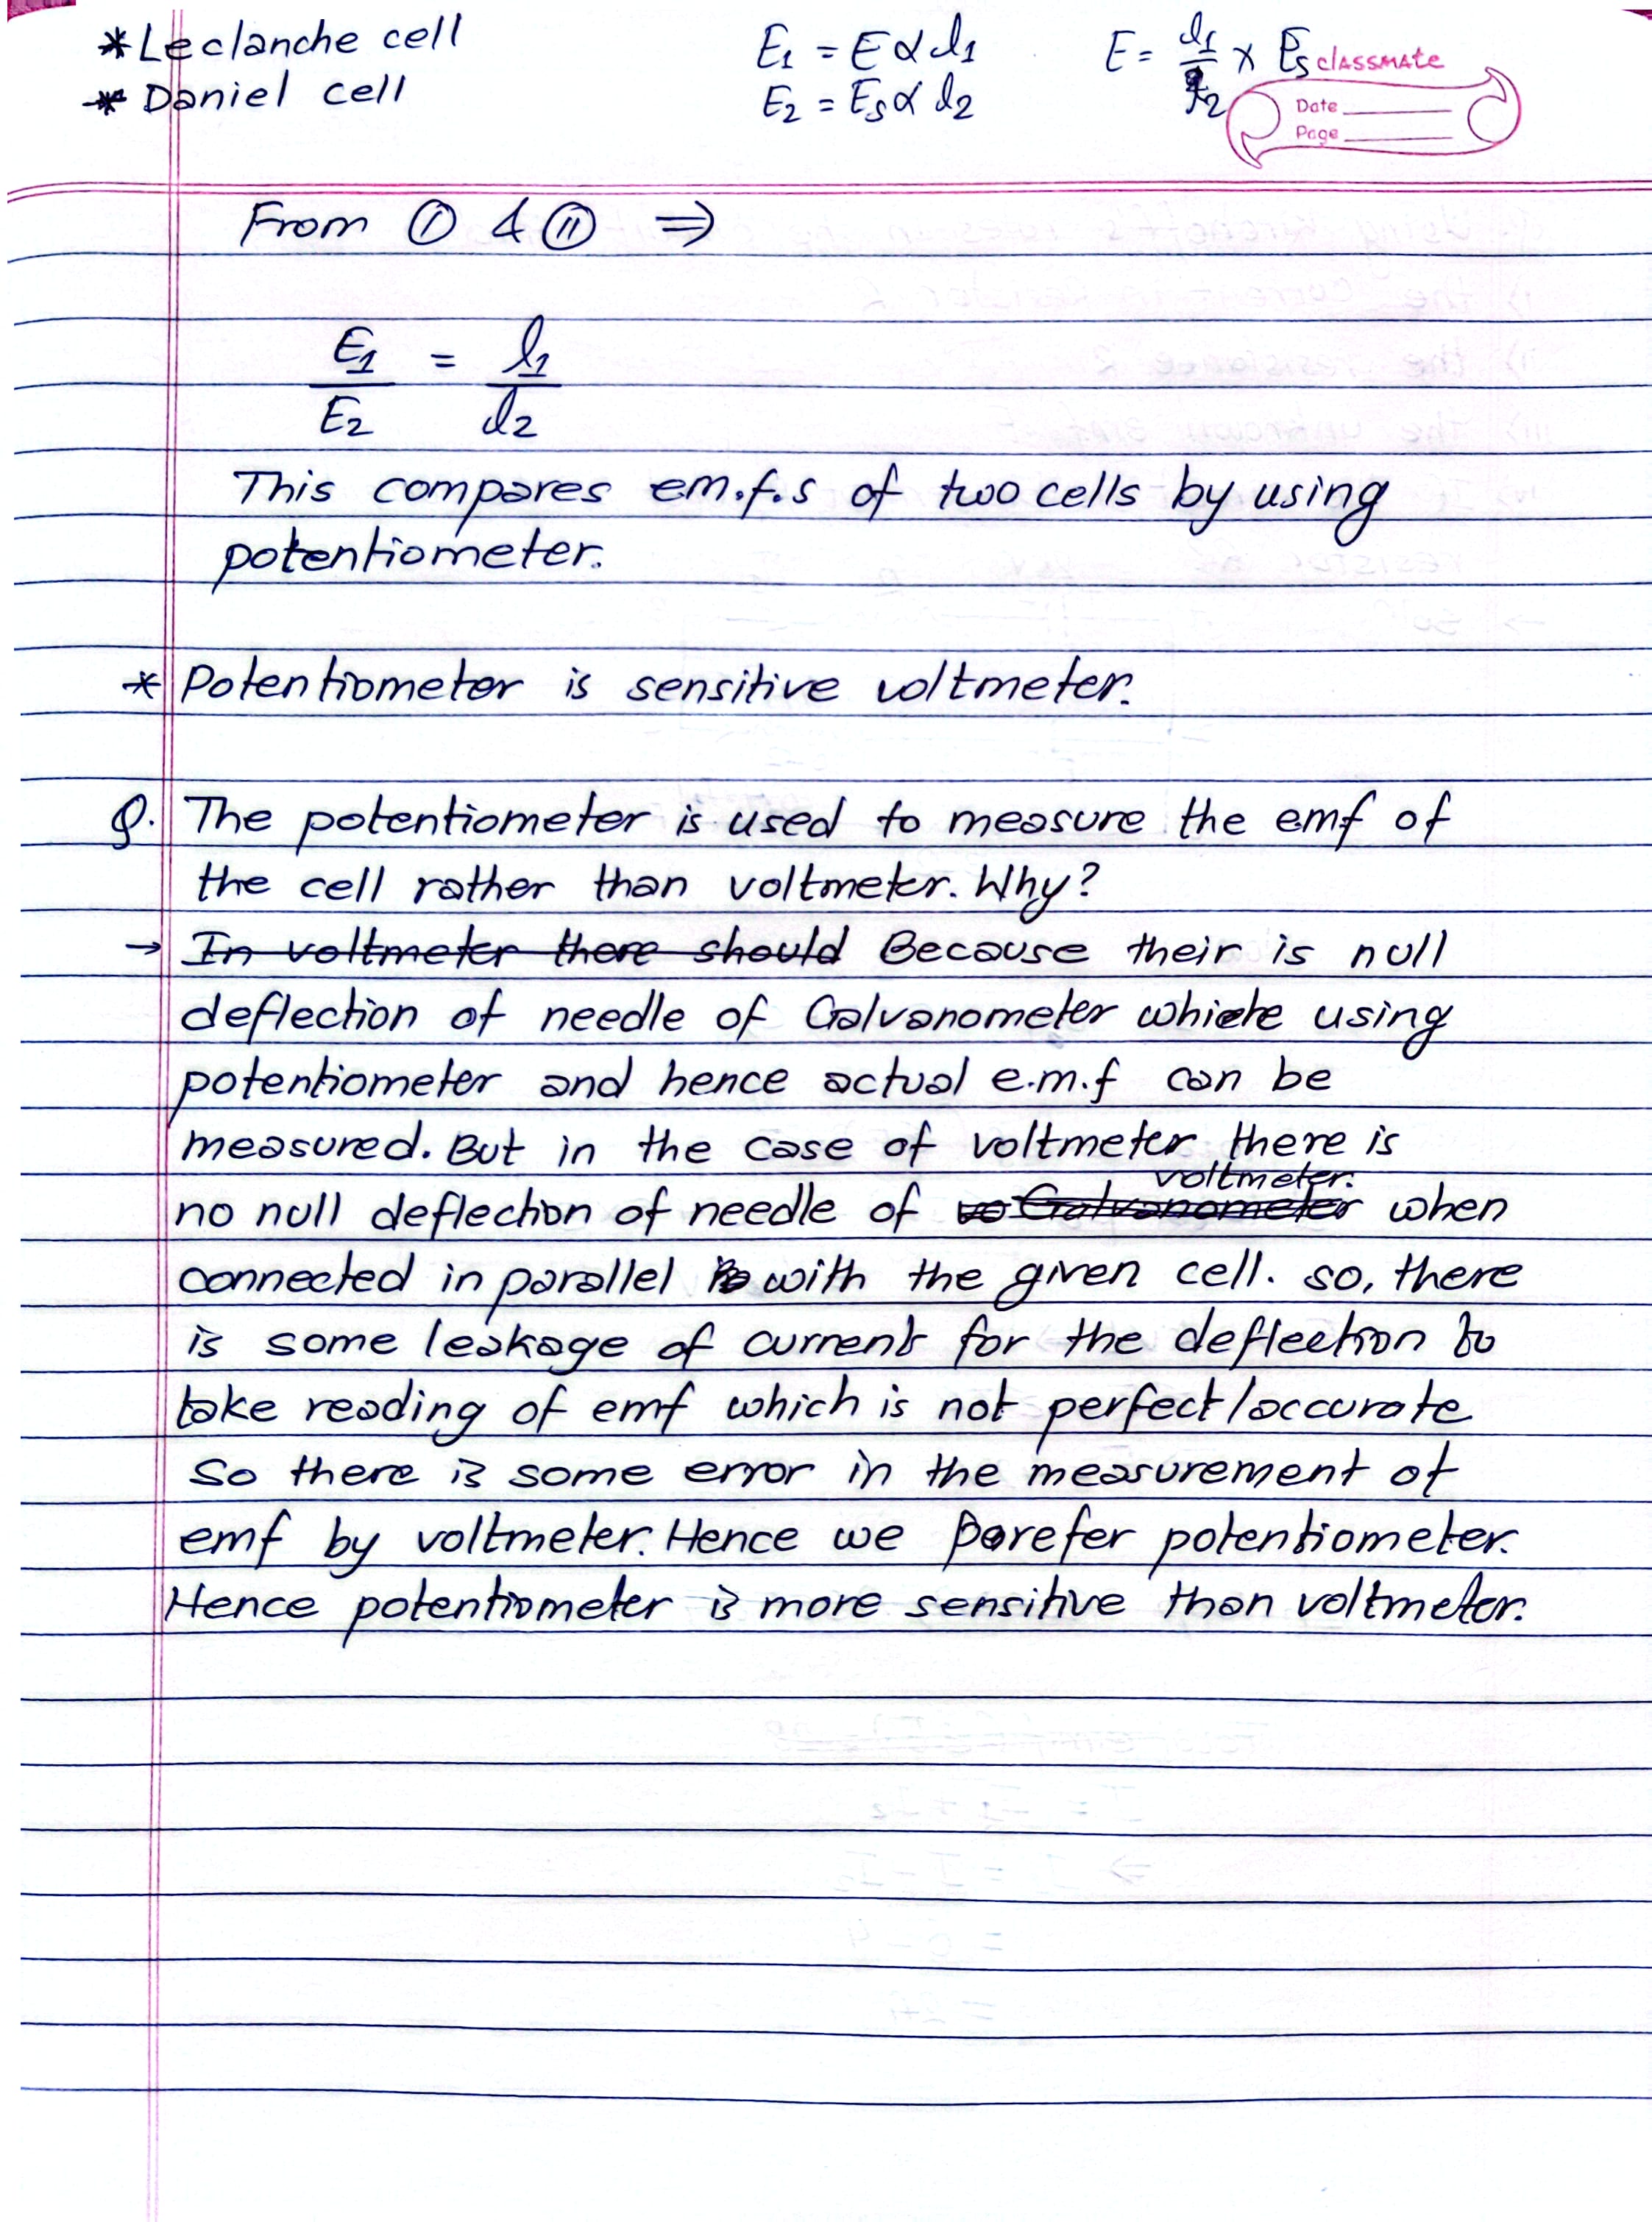 * Leclanche cell
* Daniel cell
E₁ = E α l₁
E₂ = Es α l₂
E = l₁/l₂ × Es
classmate
Date
Page
From (I) & (II) ⇒
E₁/E₂ = l₁/l₂
This compares em.f.s of two cells by using
potentiometer.
* Potentiometer is sensitive voltmeter.
Q. The potentiometer is used to measure the emf of
the cell rather than voltmeter. Why?
→ In voltmeter there should Because their is null
deflection of needle of Galvanometer using
potentiometer and hence actual e.m.f can be
measured. But in the case of voltmeter there is
no null deflection of needle of Galvanometer voltmeter. when
connected in parallel with the given cell. so, there
is some leakage of current for the deflection to
take reading of emf which is not perfect/accurate
So there is some error in the measurement of
emf by voltmeter. Hence we prefer potentiometer.
Hence potentiometer is more sensitive than voltmeter.